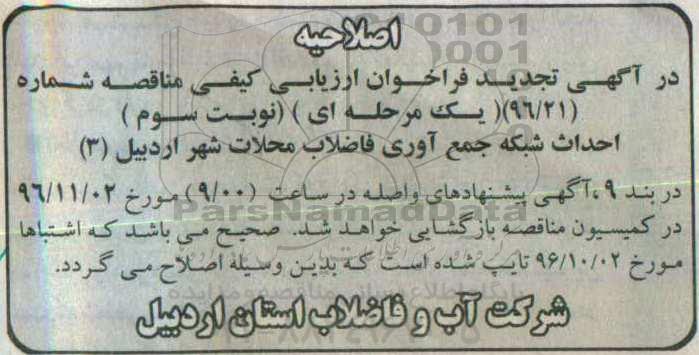 اصلاحیه
در آگهی تجدید فراخوان ارزیابی کیفی مناقصه شماره
(۹۶/۲۱)( یک مرحله ای ) (نوبت سوم )
احداث شبکه جمع آوری فاضلاب محلات شهر اردبیل (۳)
در بند ۹ ،آگهی پیشنهادهای واصله در ساعت (۹/۰۰) مورخ ۹۶/۱۱/۰۲
در کمیسیون مناقصه بازگشایی خواهد شد. صحیح می باشد که اشتباها
مورخ ۹۶/۱۰/۰۲ تایپ شده است که بدین وسیله اصلاح می گردد.
شرکت آب و فاضلاب استان اردبیل
ParsNamadData